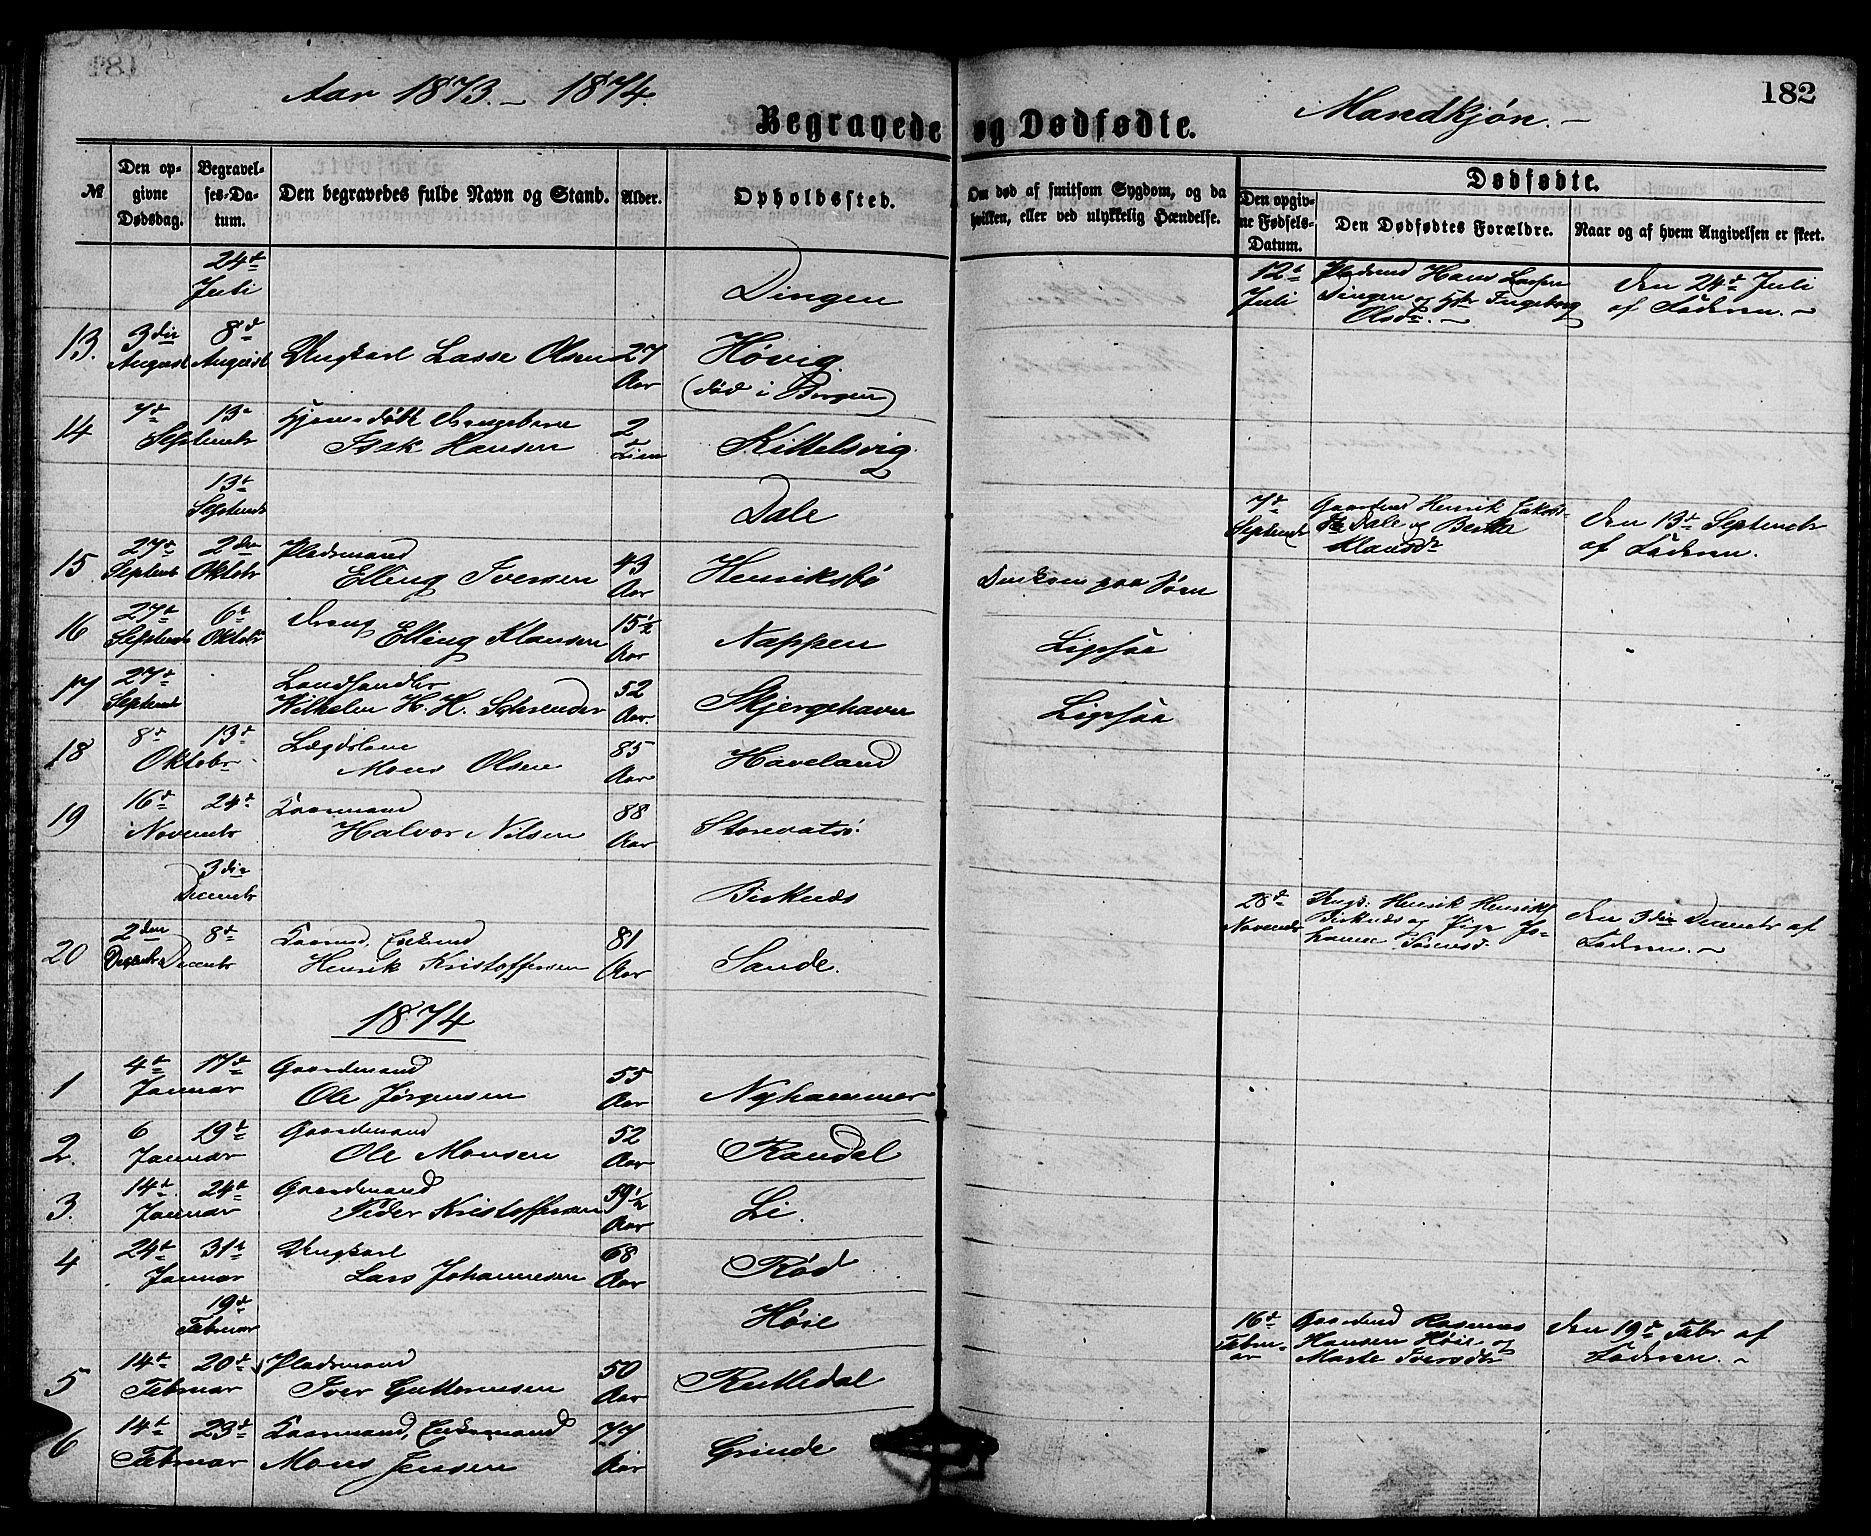 Aar 1873. - 1874.
Begravede og Dødfødte.
Mandkjøn. -
182
№
Den op-
givne
Dødsdag.
Begravel-
ses-Da-
tum.
Den begravedes fulde Navn og Stand.
Alder.
Opholdssted.
Om død af smitsom Sygdom, og da
hvilken, eller ved ulykkelig Hændelse.
Dødfødte.
Den opgiv-
ne Fødsels-
Datum.
Den Dødfødtes Forældre.
Naar og af hvem Angivelsen er skeet.
24de Juli
Dingen
12te Juli
Pladsmd Hans Lassen
Dingen og Hst. Ingeborg
Olsdr. -
Den 24de Juli
af Faderen. -
13. 3die August 8de August Ungkarl Lasse Olsen 27 Aar Høvig
(død i Bergen)
14 7de 13de Septembr Hjemmedøbt Drengebarn
Isak Hansen 2 Kittelsvig
13de Septembr
Dale
7de Septembr
Gaardmd Henrik Jakobs-
Dale og Berthe
Klausdr
Den 13de Septembr
af Faderen.
15 27de Septembr 2den Oktobr Pladsmand
Elling Iversen 43 Aar Henriksbø
paa Søen
16 27de Septembr 6te Oktobr Dreng
Elling Klausen 15½ Aar Nappen Ligesaa
17 27de Septembr Landhandler
Wilhelm H. H. Schreuder 52 Aar. Skjerjehavn Ligesaa
18 8de 13de Oktobr Lægdslem
Mons Olsen 85 Aar Haveland
19 16de 24de Novembr Kaarmand
Halvor Nilsen 88 Aar Storevatsø.
3die Decembr
Birknæs
28de Novembr
Ungk. Henrik Henriks.
Birknæs og Pige Jo-
hanne
Den 3die Decembr af
Faderen. -
20 2den Decembr 8de Decembr Kaarmd, Enkemd
Henrik Kristoffersen 81 Aar Sande.
1874
1 4de 17de Januar Gaardmand
Ole Jørgensen 55 Aar Nyhammer
2. 6 19de Januar Gaardmand
Ole Monsen 52 Aar Randal
3. 14de 24de Januar Gaardmand
Peder Kristoffersen 59½ Aar Li.
4 24de 31te Januar Ungkarl
Lars Johannesen 68 Aar Rød
19de Februar
Høie
16de Febru-
ar
Gaardmd Rasmus
Hansen Høie og
Marte Iversdtr
Den 19de Febr af
Faderen. -
5 14de 20de Februar Pladsmand
Iver Guttormsen 50 Aar Rutledal
6 14de 23de Februar Kaarmand, Enkemand
Mons Jensen 77 Aar Grinde